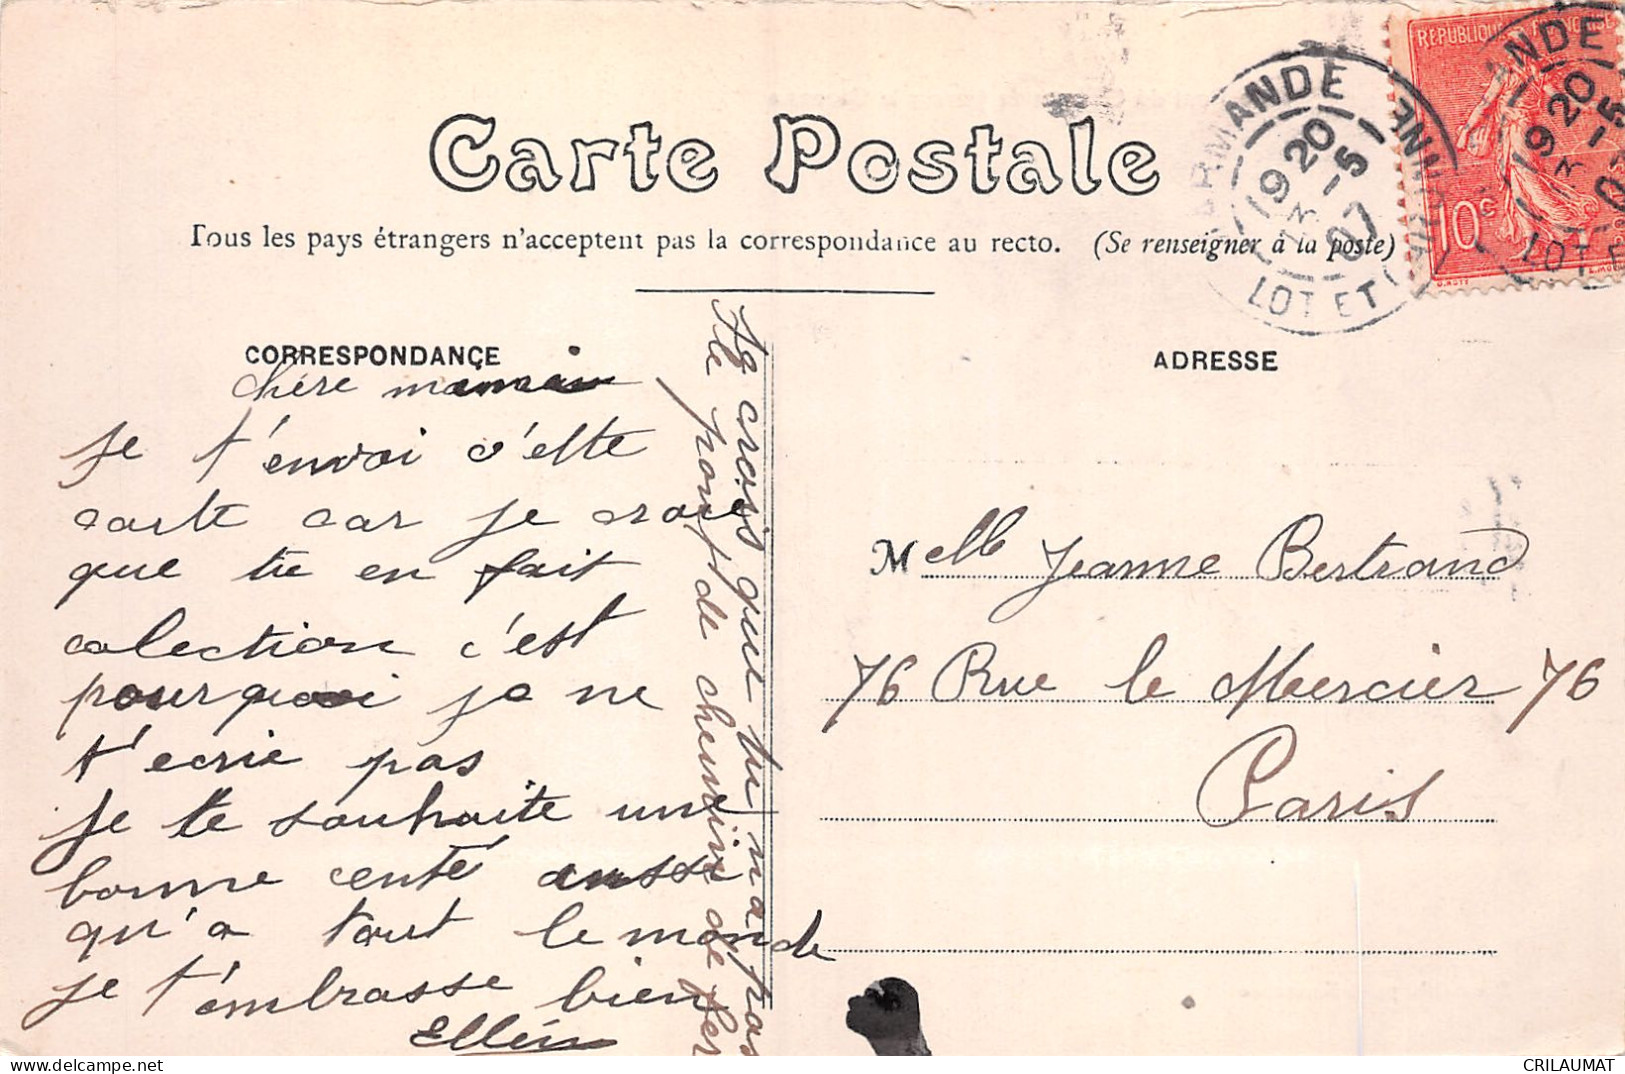 Carte Postale
Tous les pays étrangers n'acceptent pas la correspondance au recto. (Se renseigner à la poste)
RMANDE
19 20
5
07
LOT ET
REPUBLIQUE FRANÇAISE
10c
NDE
19 20
5
LOT E
CORRESPONDANCE
chère maman
je t'envoi c'ette
carte car je crois
que tu en fait
colection c'est
pourquoi je ne
t'ecrie pas
je te souhaite une
bonne centé aussi
qu'a tout le monde
je t'embrasse bien
Je crois que tu n'a pas
le pont de chemin de fer
ADRESSE
Melle Jeanne Bertrand
76 Rue le Mercier 76
Paris
CRILAUMAT